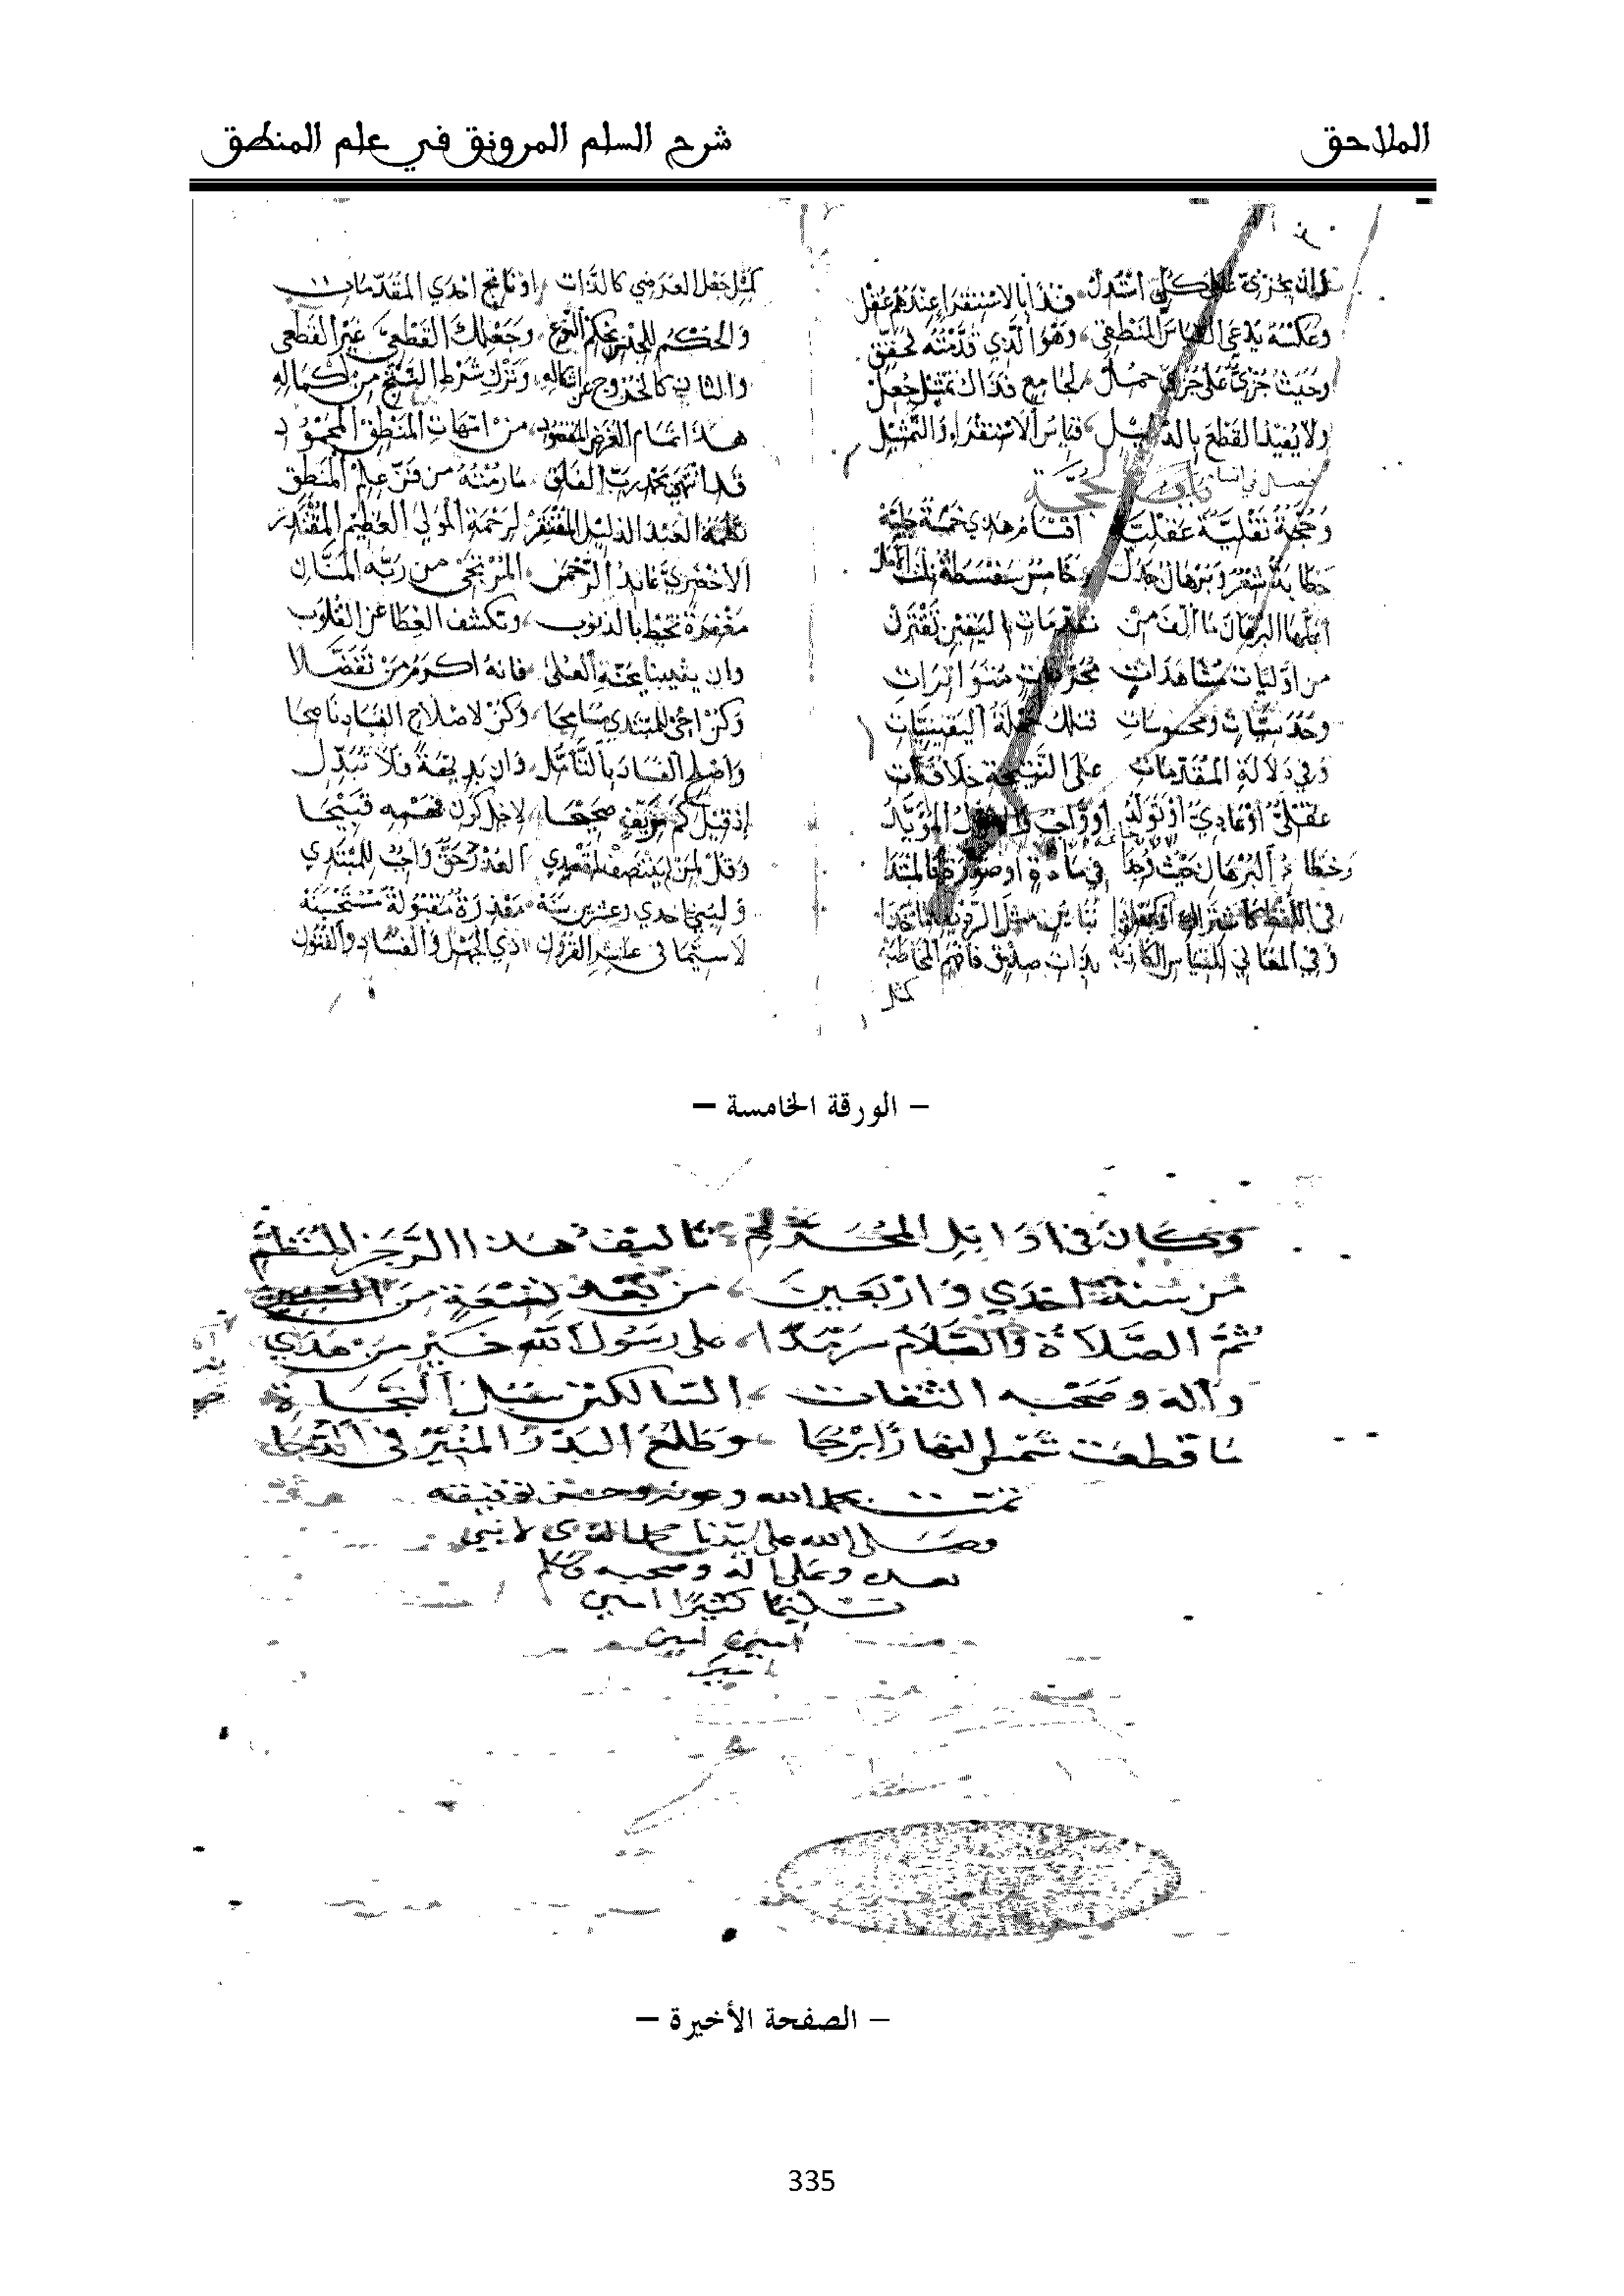 الملاحق
شرح السلم المرونق في علم المنطق
وان بجزئ على كلي استدل فذا بالاستقرا عندهم عقل
وعكسه يدعى القياس المنطقي وهو الذي قدمته فحقق
وحيث جزئي على جزئي حمل لجامع فذاك تمثيل جعل
ولا يفيد القطع بالدليل قياس الاستقراء والتمثيل
الحجة
وحجة نقلية عقلية اقسام هذي خمسة جلية
خطابة شعر وبرهان جدل وخامس سفسطة نلت الامل
اجلها البرهان ما الف من مقدمات باليقين تقترن
من اوليات مشاهدات مجربات متواترات
وحدسيات ومحسوسات فتلك جملة اليقينيات
وفي دلالة المقدمات على النتيجة خلاف ات
عقلي او عادي او تولد او واجب والاول المؤيد
وخطاء البرهان حيث وجدا في مادة او صورة فالمبتدا
في اللفظ كاشتراك او كجعل ذا تباين مثل الرديف ماخذا
وفي المعاني للقياس الكاذبة بذات صدق فافهم المخاطبة
كمثل
كمثل جعل العرضي كالذات او ناتج احدي المقدمات
والحكم للجنس بحكم النوع وجعلك القطعي غير القطعي
والثاني كالخروج عن اشكاله وترك شرط النتج من اكماله
هذا تمام الغرض المقصود من امهات المنطق المحمود
قد انتهى بحمد رب الفلق ما رمته من فن علم المنطق
نظمه العبد الذليل المفتقر لرحمة المولى العظيم المقتدر
الاخضري عابد الرحمن المرتجى من ربه المنان
مغفرة تحيط بالذنوب وتكشف الغطا عن القلوب
وان يثيبنا بجنة العلى فانه اكرم من تفضلا
وكن اخي للمبتدي مسامحا وكن لاصلاح الفساد ناصحا
واصلح الفساد بالتأمل وان بديهة فلا تبدل
إذ قيل كم مزيف صحيحا لاجل كون فهمه قبيحا
وقل لمن لم ينتصف لمقصدي العذر حق واجب للمبتدي
ولبني احدي وعشرين سنة معذرة مقبولة مستحسنة
لا سيما في عاشر القرون ذي الجهل والفساد والفتون
– الورقة الخامسة –
وكان في اوايل المحرم تاليف هذا الرجز المنظم
من سنة احدي واربعين من بعد تسعة من المئين
ثم الصلاة والسلام سرمدا على رسول الله خير من هدي
وآله وصحبه الثقات السالكين سبل النجاة
ما قطعت شمس النهار ابرجا وطلع البدر المنير في الدجا
تمت بحمد الله وعونه وحسن توفيقه
وصلى الله على سيدنا محمد الذي لا نبي
بعده وعلى اله وصحبه وسلم
تسليما كثيرا امين
امين امين
امين
– الصفحة الأخيرة –
335